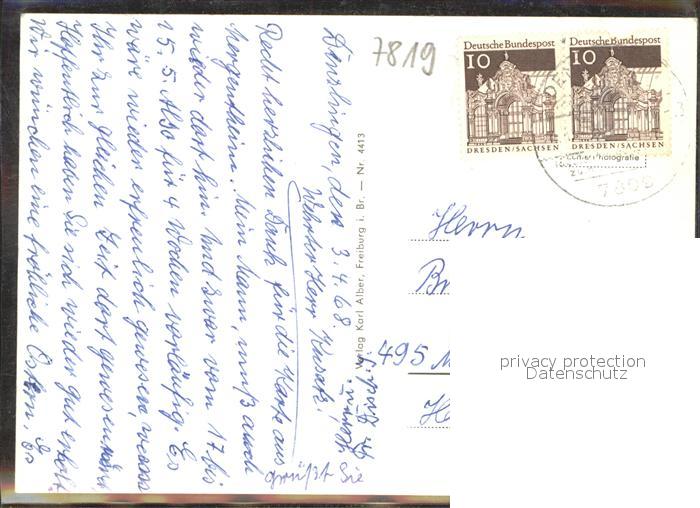 7819
Deutsche Bundespost
10
DRESDEN/SACHSEN
Deutsche Bundespost
10
DRESDEN/SACHSEN
7809
Denzlingen, den 3.4.68.
Werter Herr
Recht herzlichen Dank für die Karte aus
Mergentheim. Mein Mann, muß auch
wieder dort hin. Und zwar vom 17. bis
15.5. Also für 4 Wochen vorläufig. Es
wäre wieder erfreulich gewesen, wenn
Ihr zur gleichen Zeit dort gewesen wärt
Hoffentlich haben Sie sich wieder gut erholt.
Wir wünschen eine fröhliche Ostern. Es
grüßt Sie
Verlag Karl Alber, Freiburg i. Br. — Nr. 4413
Herrn
495 M
privacy protection
Datenschutz